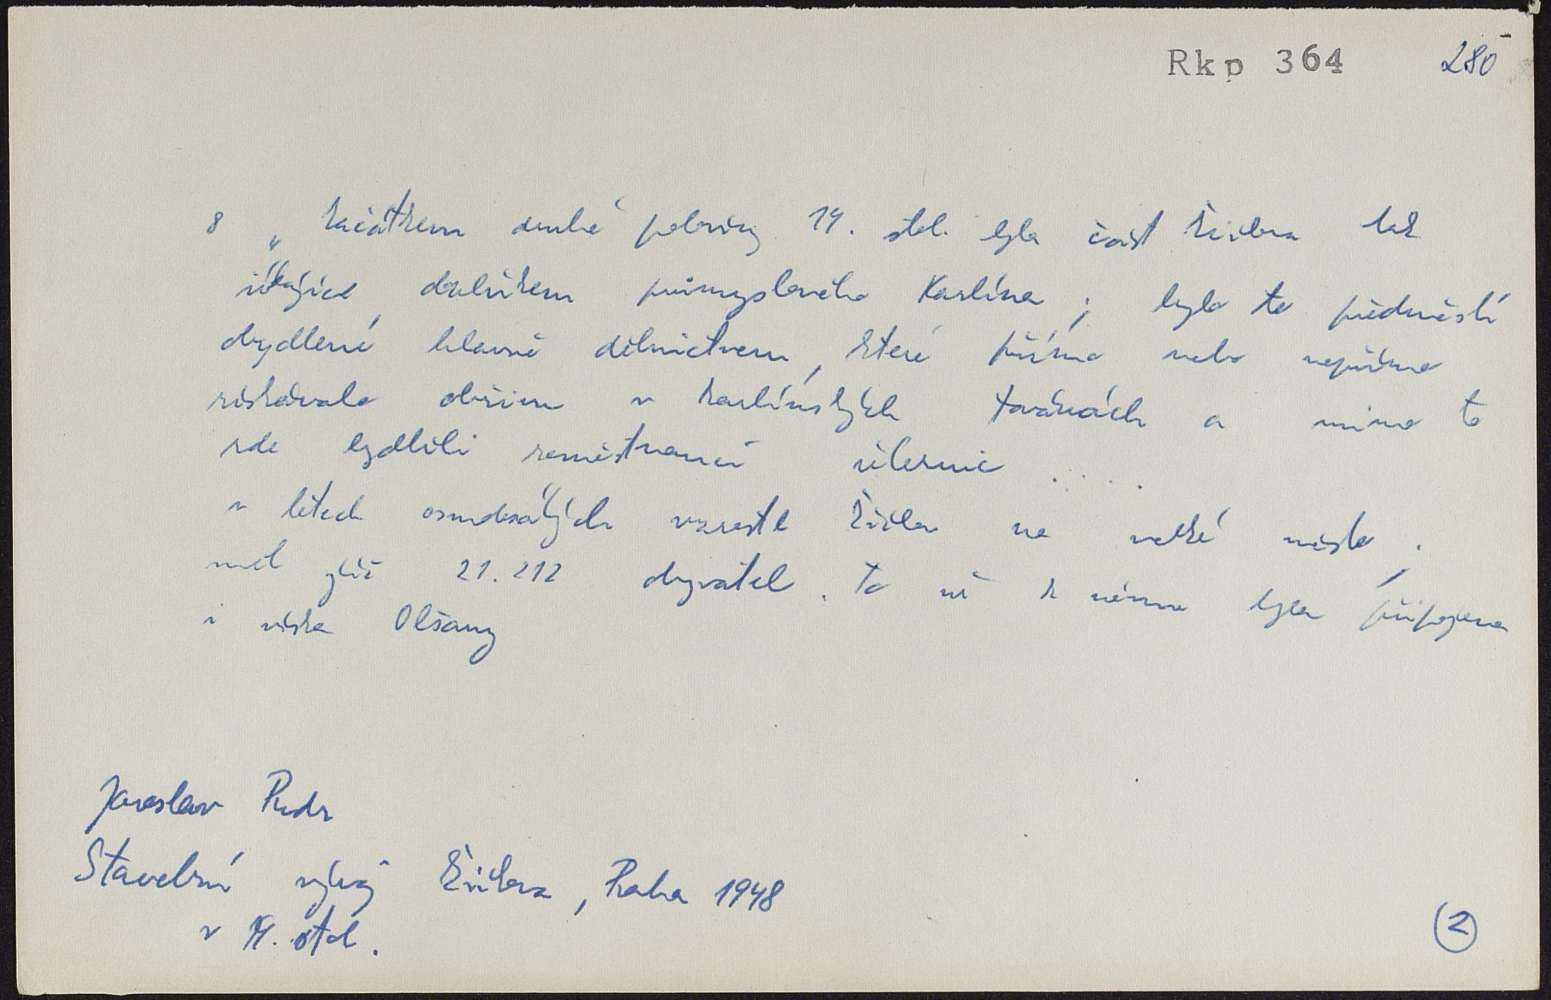 Rkp 364 280
8 „ Začátkem druhé poloviny 19. stol. byla část Žižkova tak
říkajíc doplňkem průmyslového Karlína ; bylo to předměstí
obydlené hlavně dělnictvem, které přímo nebo nepřímo
získávalo obživu v karlínských továrnách a mimo to
zde bydlili zaměstnanci železnic .....
v letech osmdesátých vzrostl Žižkov na velké město ;
měl již 21.212 obyvatel. To už k němu byla připojena
i víska Olšany
Jaroslav Pudr
Stavební vývoj Žižkova, Praha 1948
v 19. stol.
2